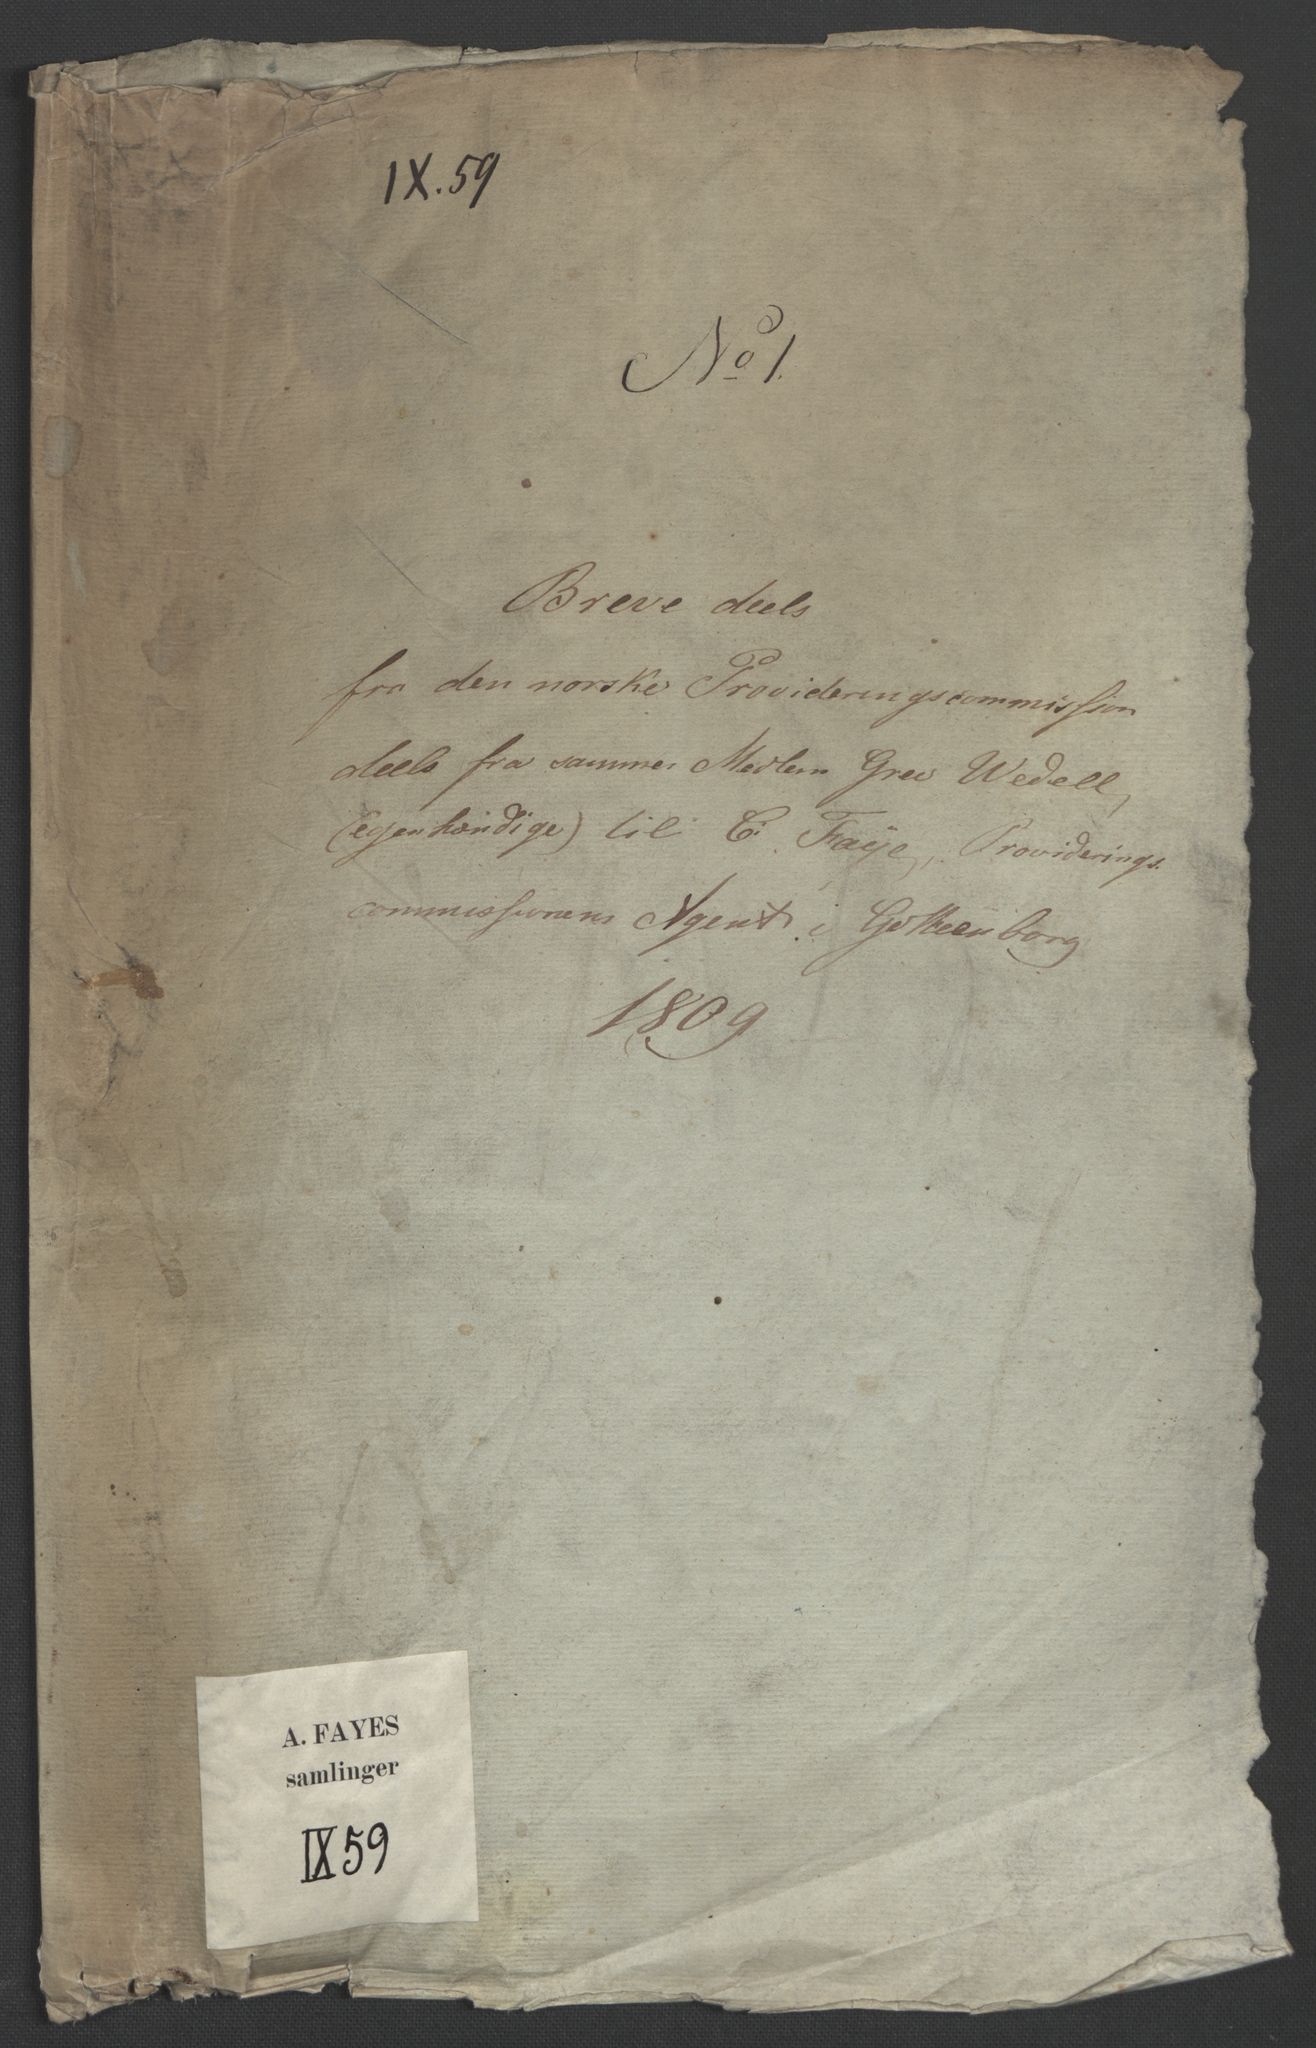 IX.59
No 1.
Breve deels
fra den norske Provideringscommission
deels fra sammes Medlem Grev Wedell,
(egenhændige) til C. Faÿe, Providerings-
commissionens Agent i Gottenborg
1809
A. FAYES
samlinger
IX 59